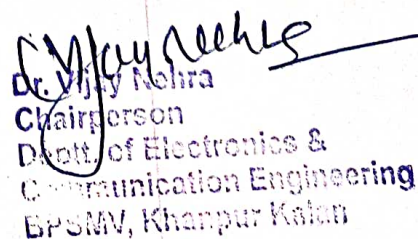 Vijay Nehra
Dr. Vijay Nehra
Chairperson
Deptt. of Electronics &
Communication Engineering
BPSMV, Khanpur Kalan